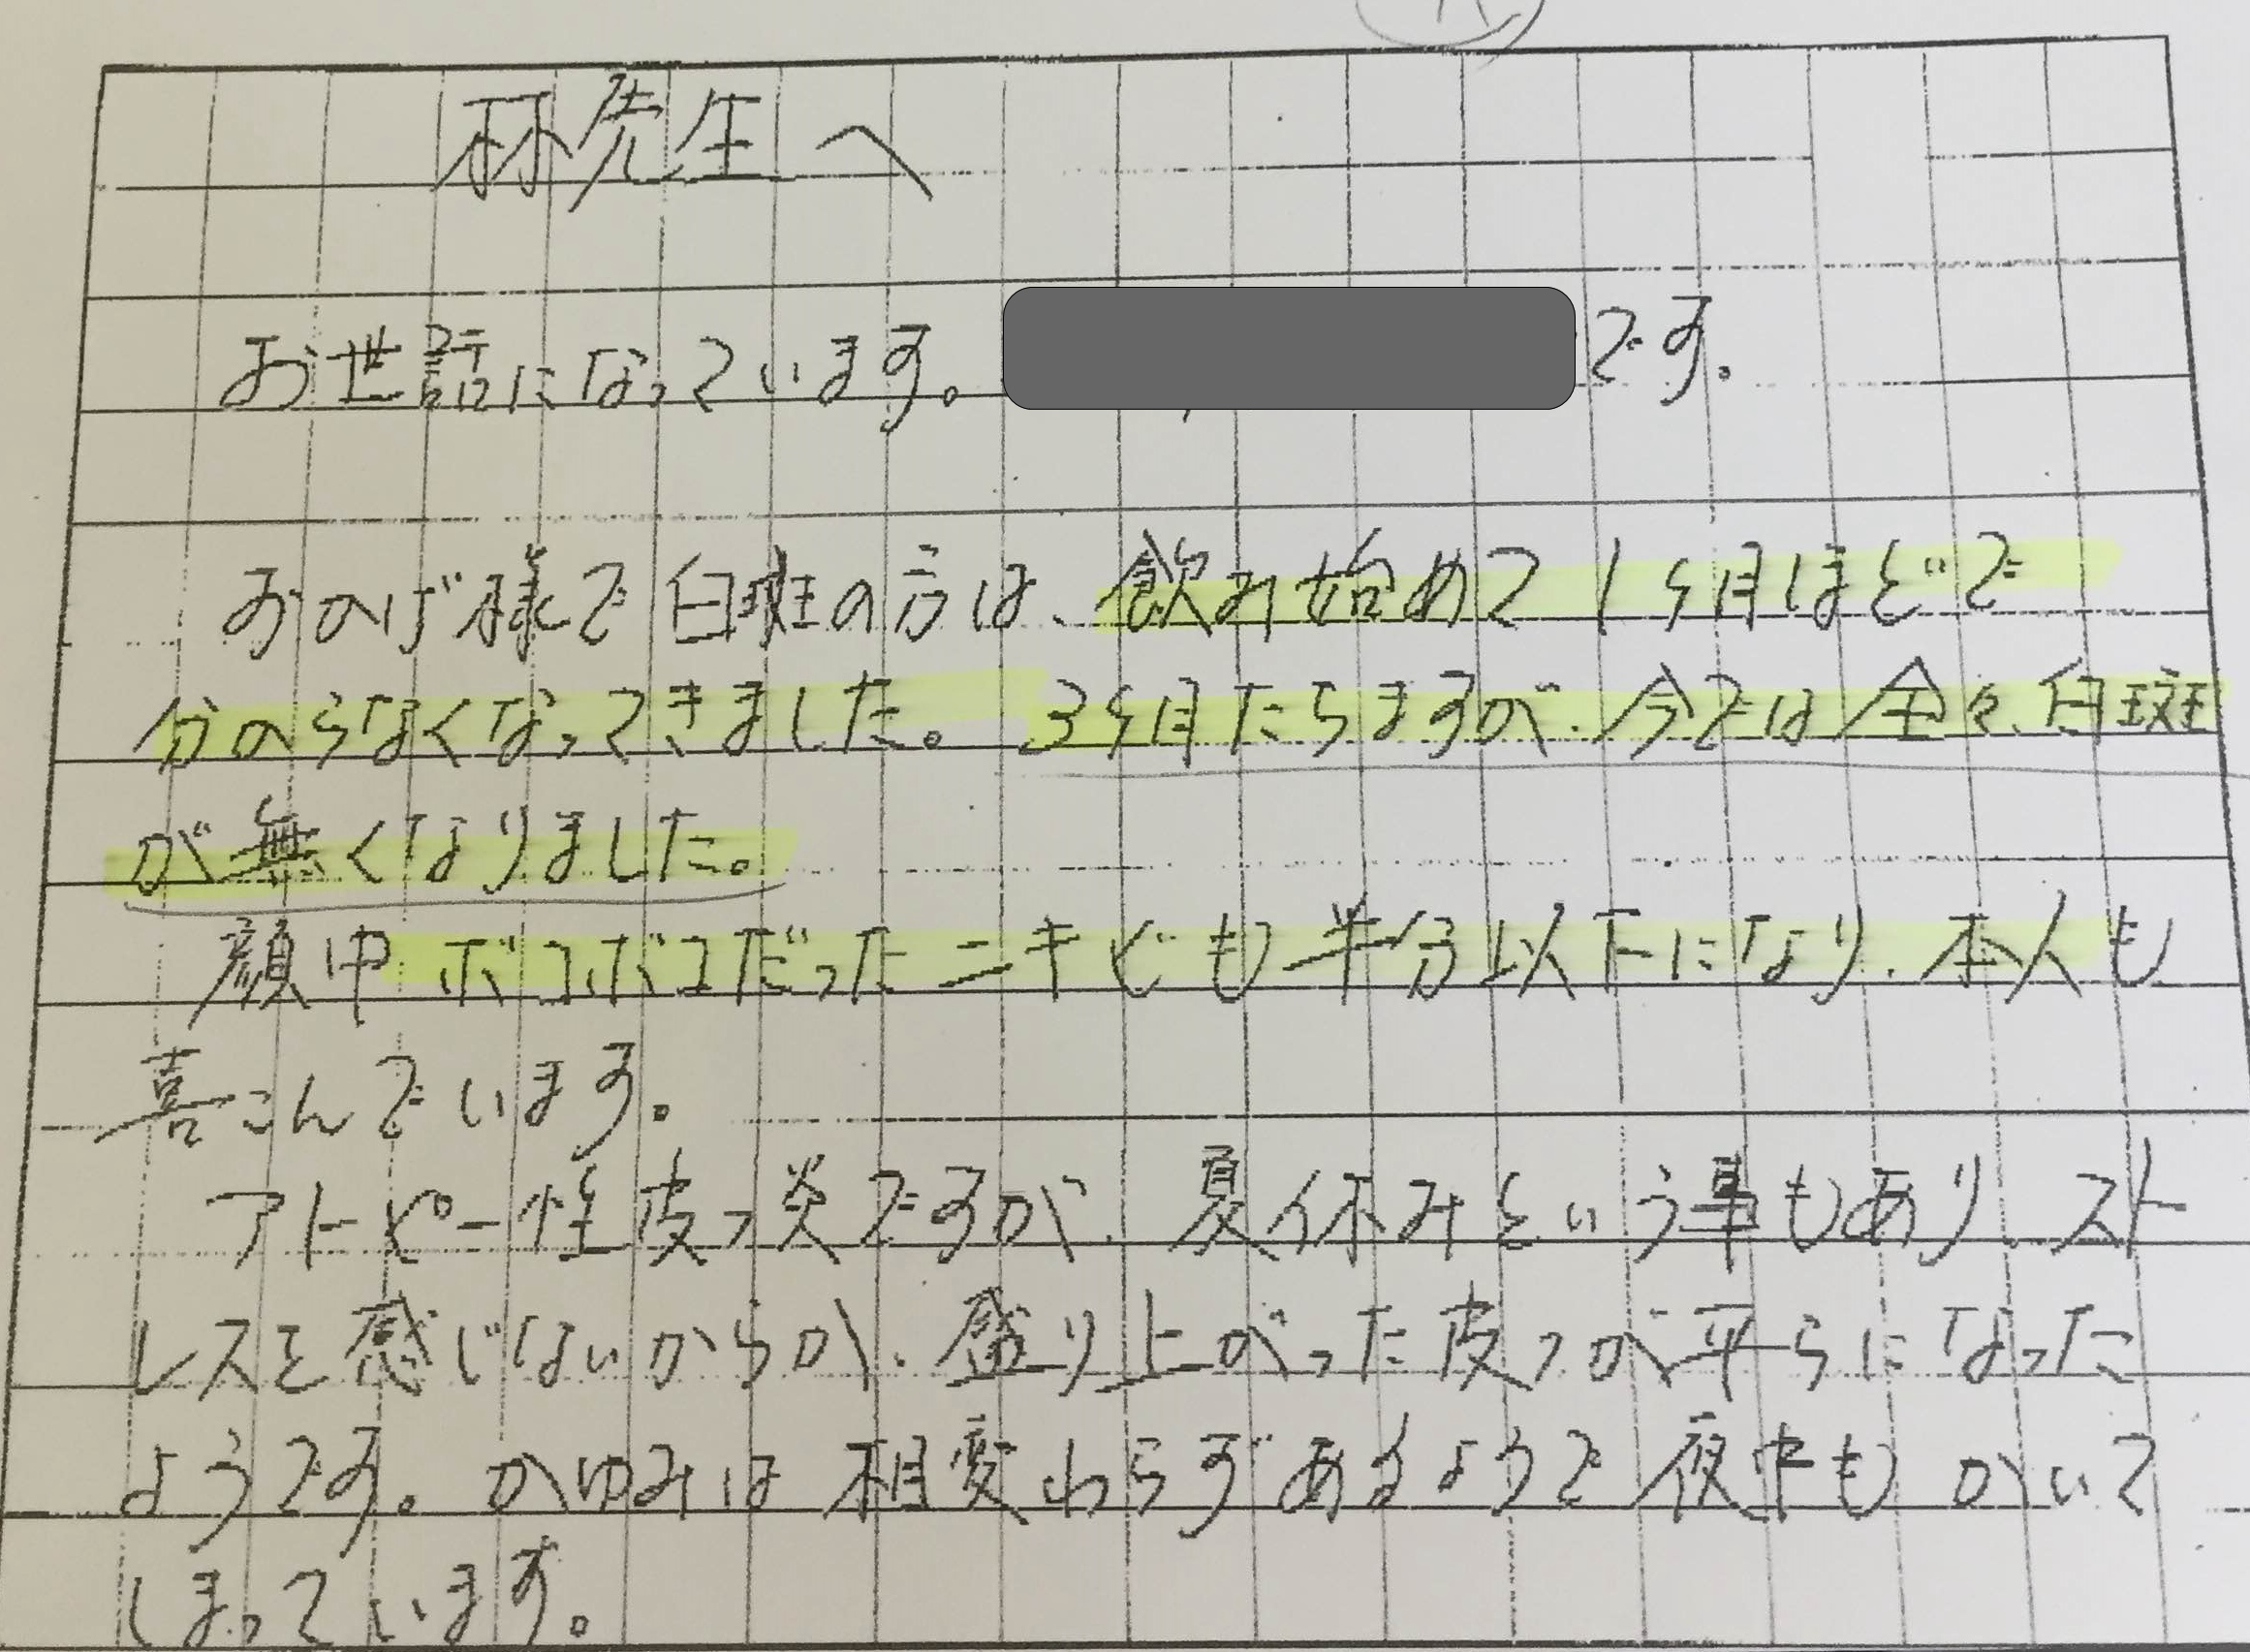 林先生へ
お世話になっています。 です。
おかげ様で白斑の方は、飲み始めて1ヶ月ほどで
分からなくなってきました。3ヶ月たちますが、今では全く白斑
が無くなりました。
顔中ボコボコだったニキビも半分以下になり、本人も
喜こんでいます。
アトピー性皮フ炎ですが、夏休みという事もあり、スト
レスを感じないからか、盛り上がった皮フが平らになった
ようです。かゆみは相変わらずあるようで夜中もかいて
しまっています。